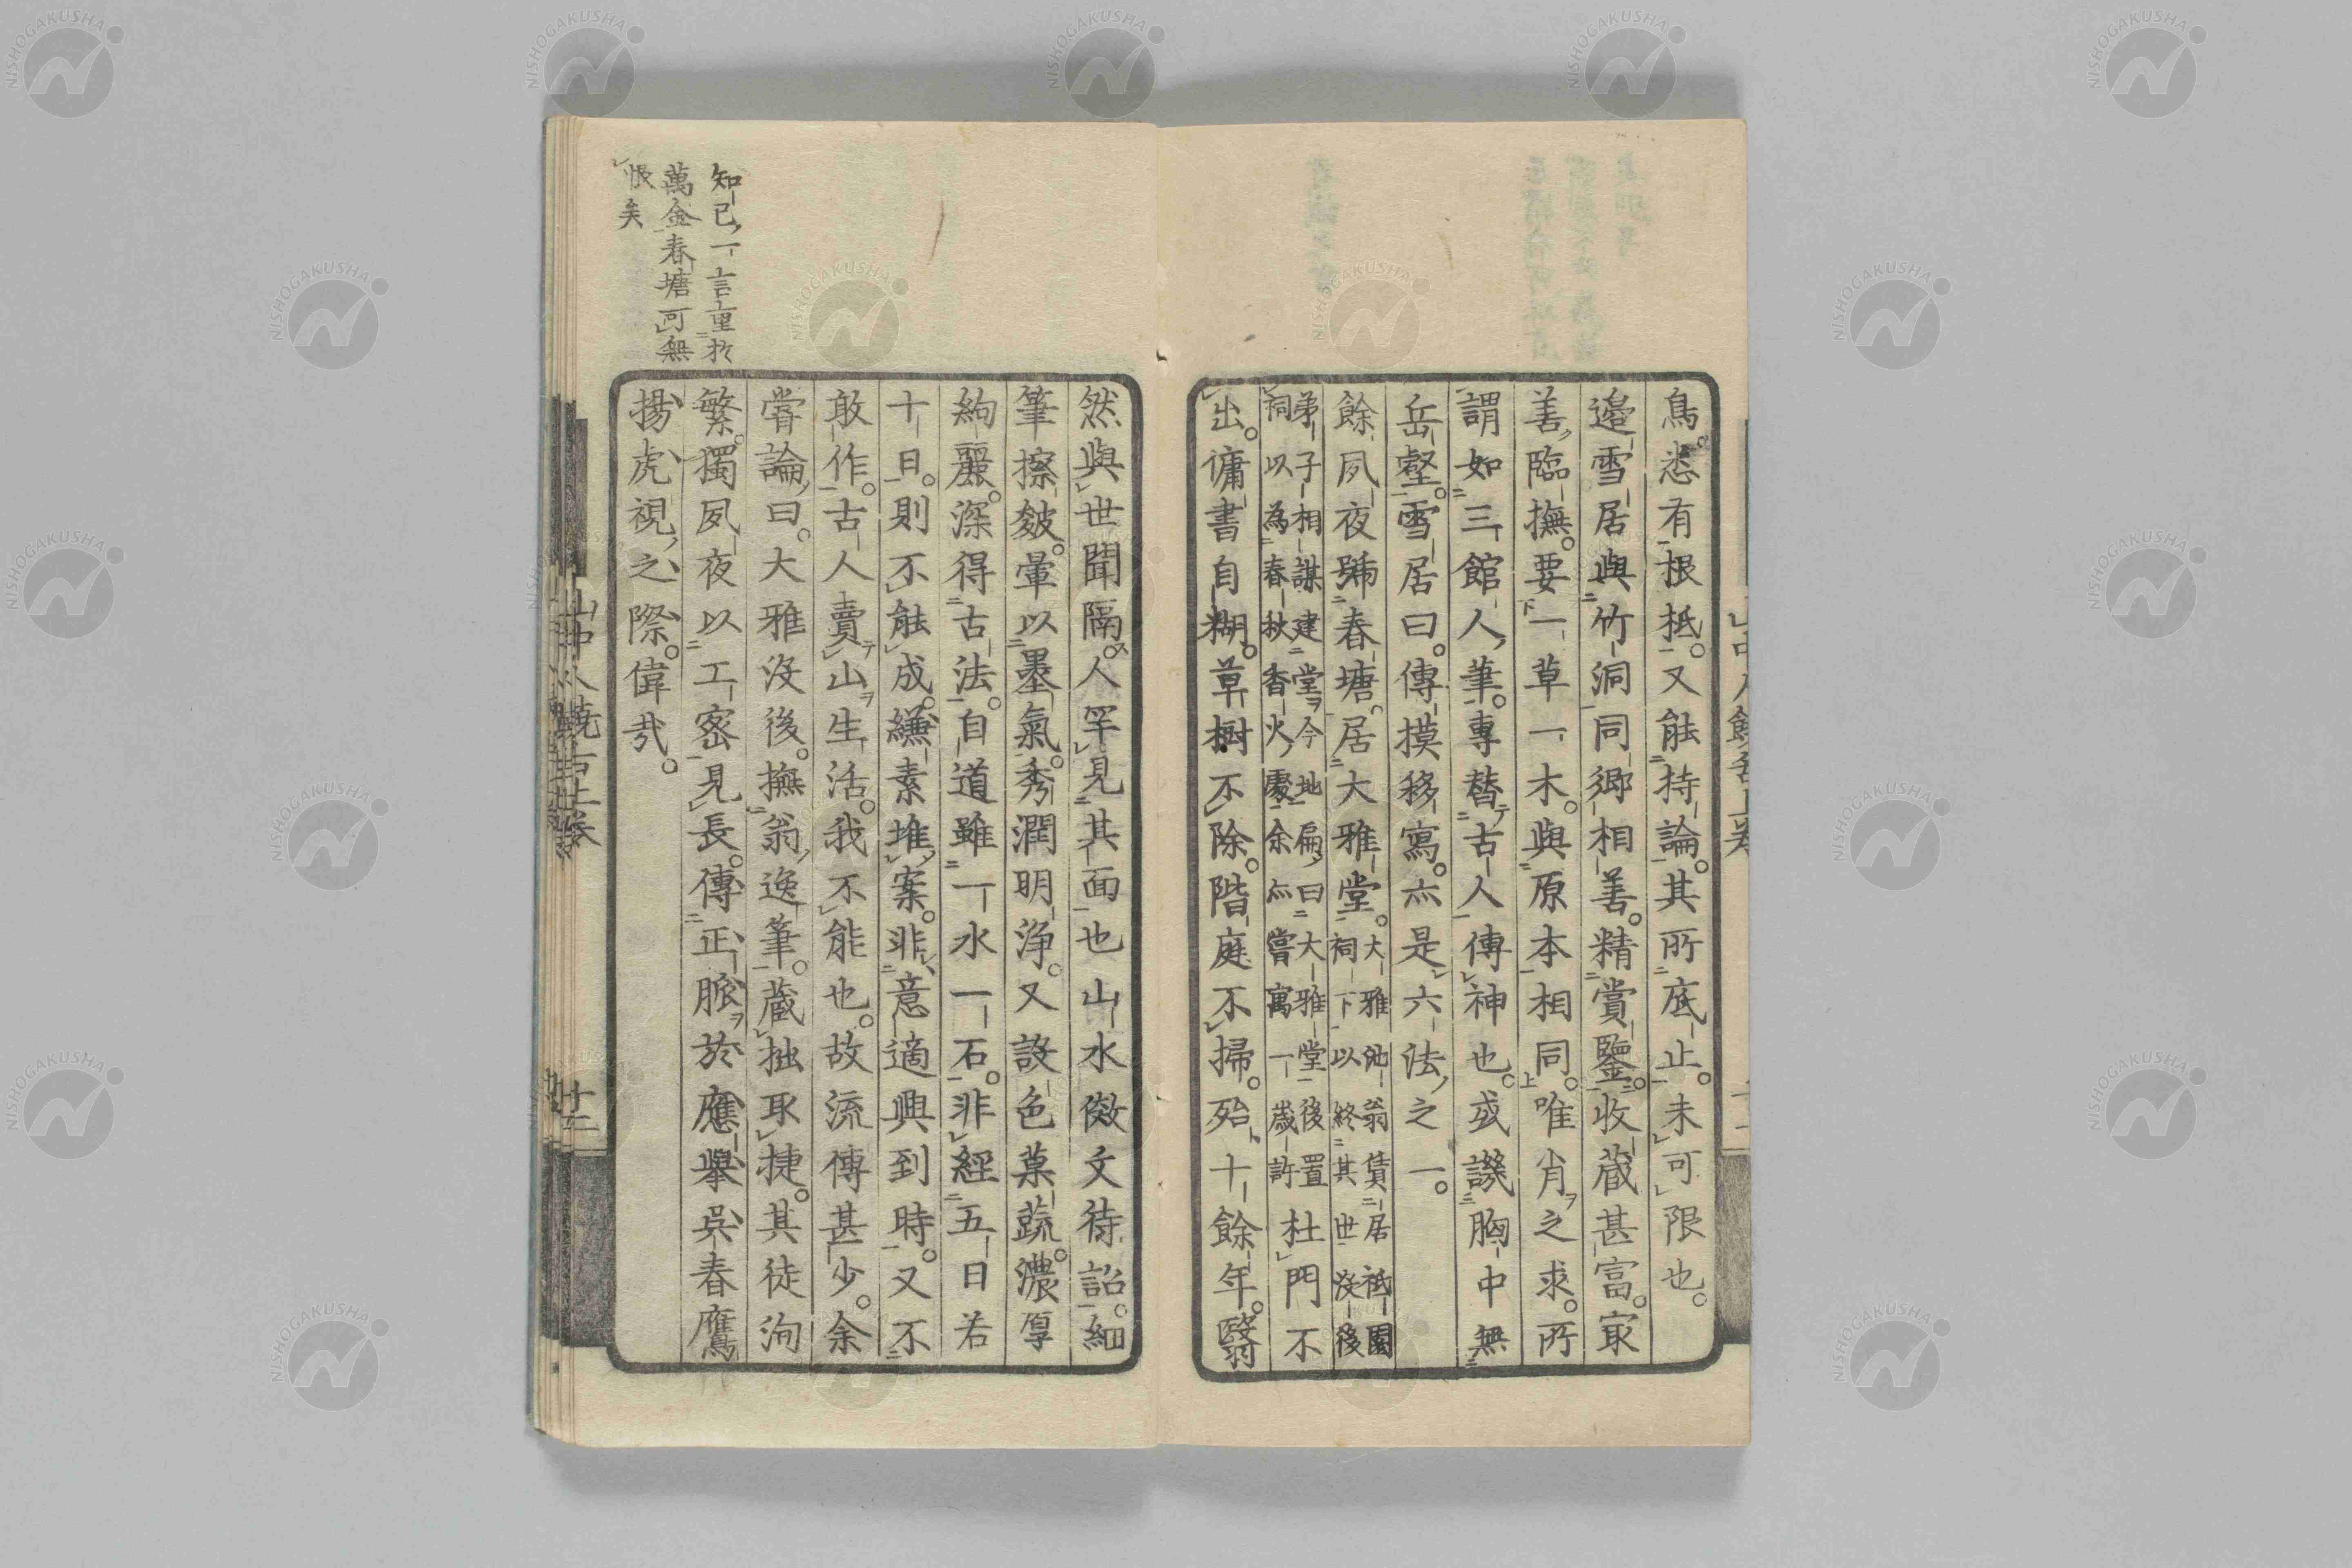 鳥。悉有根柢。又能持論。其所底止。未可限也。
邉雪居與竹洞同鄉相善。精賞鑒。收蔵甚富。㝡
善臨撫。要一草一木。與原本相同。唯肖之求。所
謂如三館人筆。專替古人傳神也。或譏胸中無
岳壑。雪居曰。傳摸移寫。亦是六法之一。
餘夙夜號春塘。居大雅堂。大雅池翁賃居祗園
祠下以終其世沒後
弟子相謀建堂今地扁曰大雅堂後置
祠以為春秋香火處余亦嘗寓一歳許杜門不
出。傭書自糊。草樹不除。階庭不掃。殆十餘年。翳
然與世聞隔。人罕見其面也山水倣文待詔。細
筆擦皴。暈以墨氣。秀潤明浄。又設色菓蔬。濃厚
絢麗。深得古法。自道雖一水一石。非經五日若
十日。則不能成。縑素堆案。非意適興到時。又不
敢作。古人賣山生活。我不能也。故流傳甚少。余
嘗論曰。大雅沒後。撫翁逸筆。蔵拙取捷。其徒洵
繁。獨夙夜以工密見長。傳正脈於應擧吳春鷹
揚虎視之際。偉哉。
知己一言重於
萬金春塘可無
恨矣
山中人饒舌上巻
十二
NISHOGAKUSHA